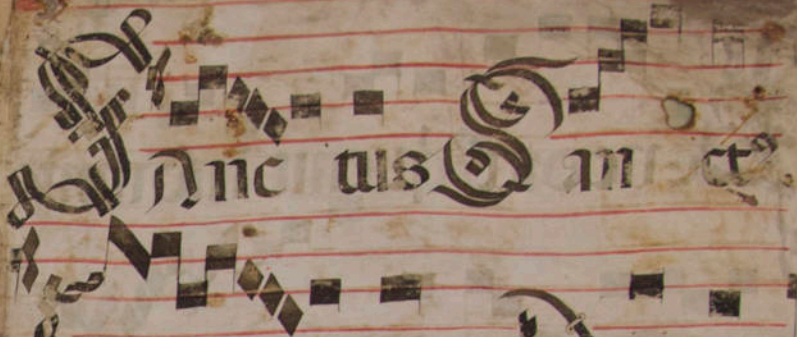 Sanctus Sanctꝰ